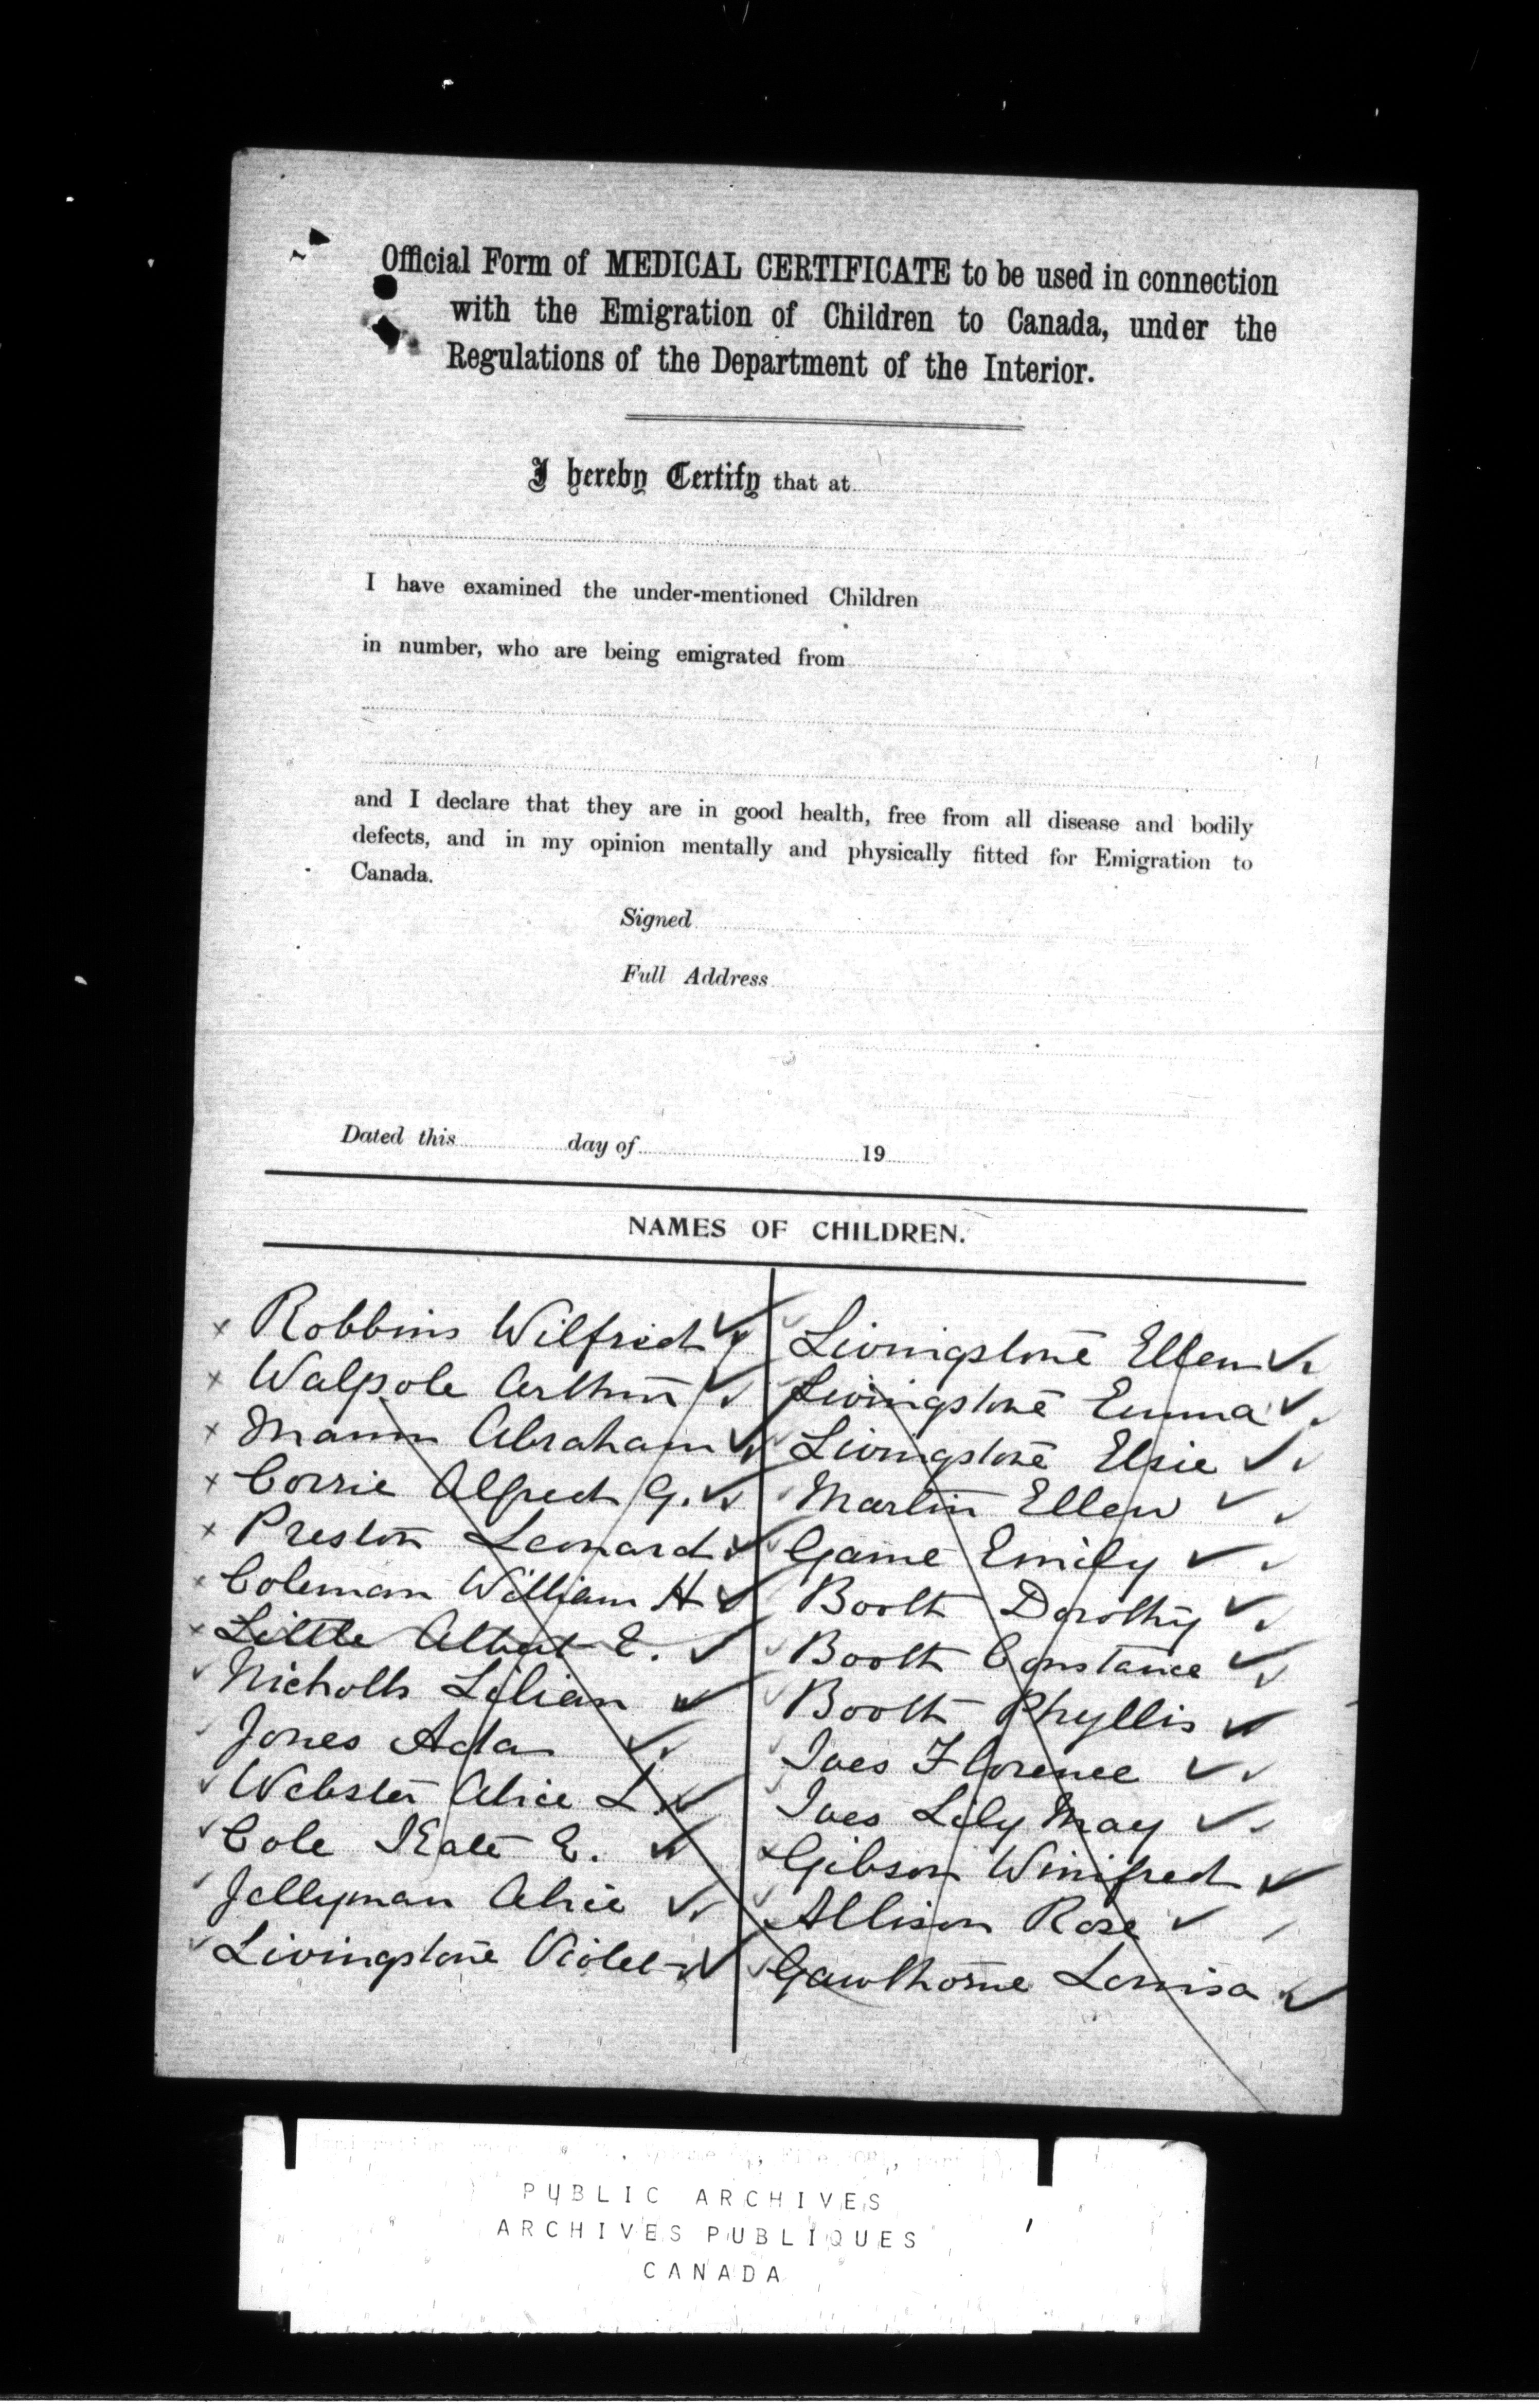 Official Form of MEDICAL CERTIFICATE to be used in connection
with the Emigration of Children to Canada, under the
Regulations of the Department of the Interior.
I hereby Certify that at
I have examined the under-mentioned Children
in number, who are being emigrated from
and I declare that they are in good health, free from all disease and bodily
defects, and in my opinion mentally and physically fitted for Emigration to
Canada.
Signed
Full Address
Dated this day of 19
NAMES OF CHILDREN.
Robbins Wilfrid
Walpole Arthur
Mann Abraham
Corrie Alfred G.
Preston Leonard
Coleman William H
Little Albert E.
Nicholls Lilian
Jones Ada
Webster Alice L.
Cole Kate E.
Jellyman Alice
Livingstone Violet
Livingstone Ellen
Livingstone Emma
Livingstone Elsie
Martin Ellen
Game Emily
Booth Dorothy
Booth Constance
Booth Phyllis
Ives Florence
Ives Lily May
Gibson Winifred
Allison Rose
Gawthorne Louisa
PUBLIC ARCHIVES
ARCHIVES PUBLIQUES
CANADA